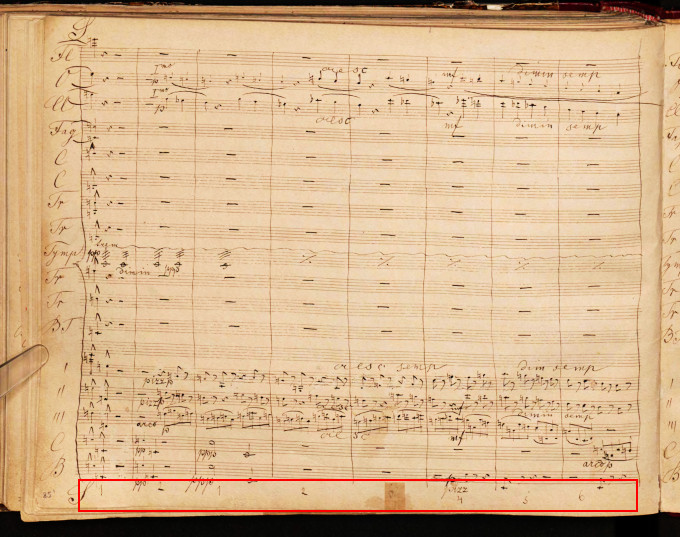 Fl
cresc mf dimin semp
Cl
p
cresc mf dimin semp
Fag
C
C
Tr
Tr
Tymp
dimin ppp
Tr
Tr
BT
cresc semp dim semp
I
pizz p
II
pizz
III
dimin semp
arco p cresc mf
C
pp ppp arco p
B
pp ppp pizz
1 2 3 4 5 6